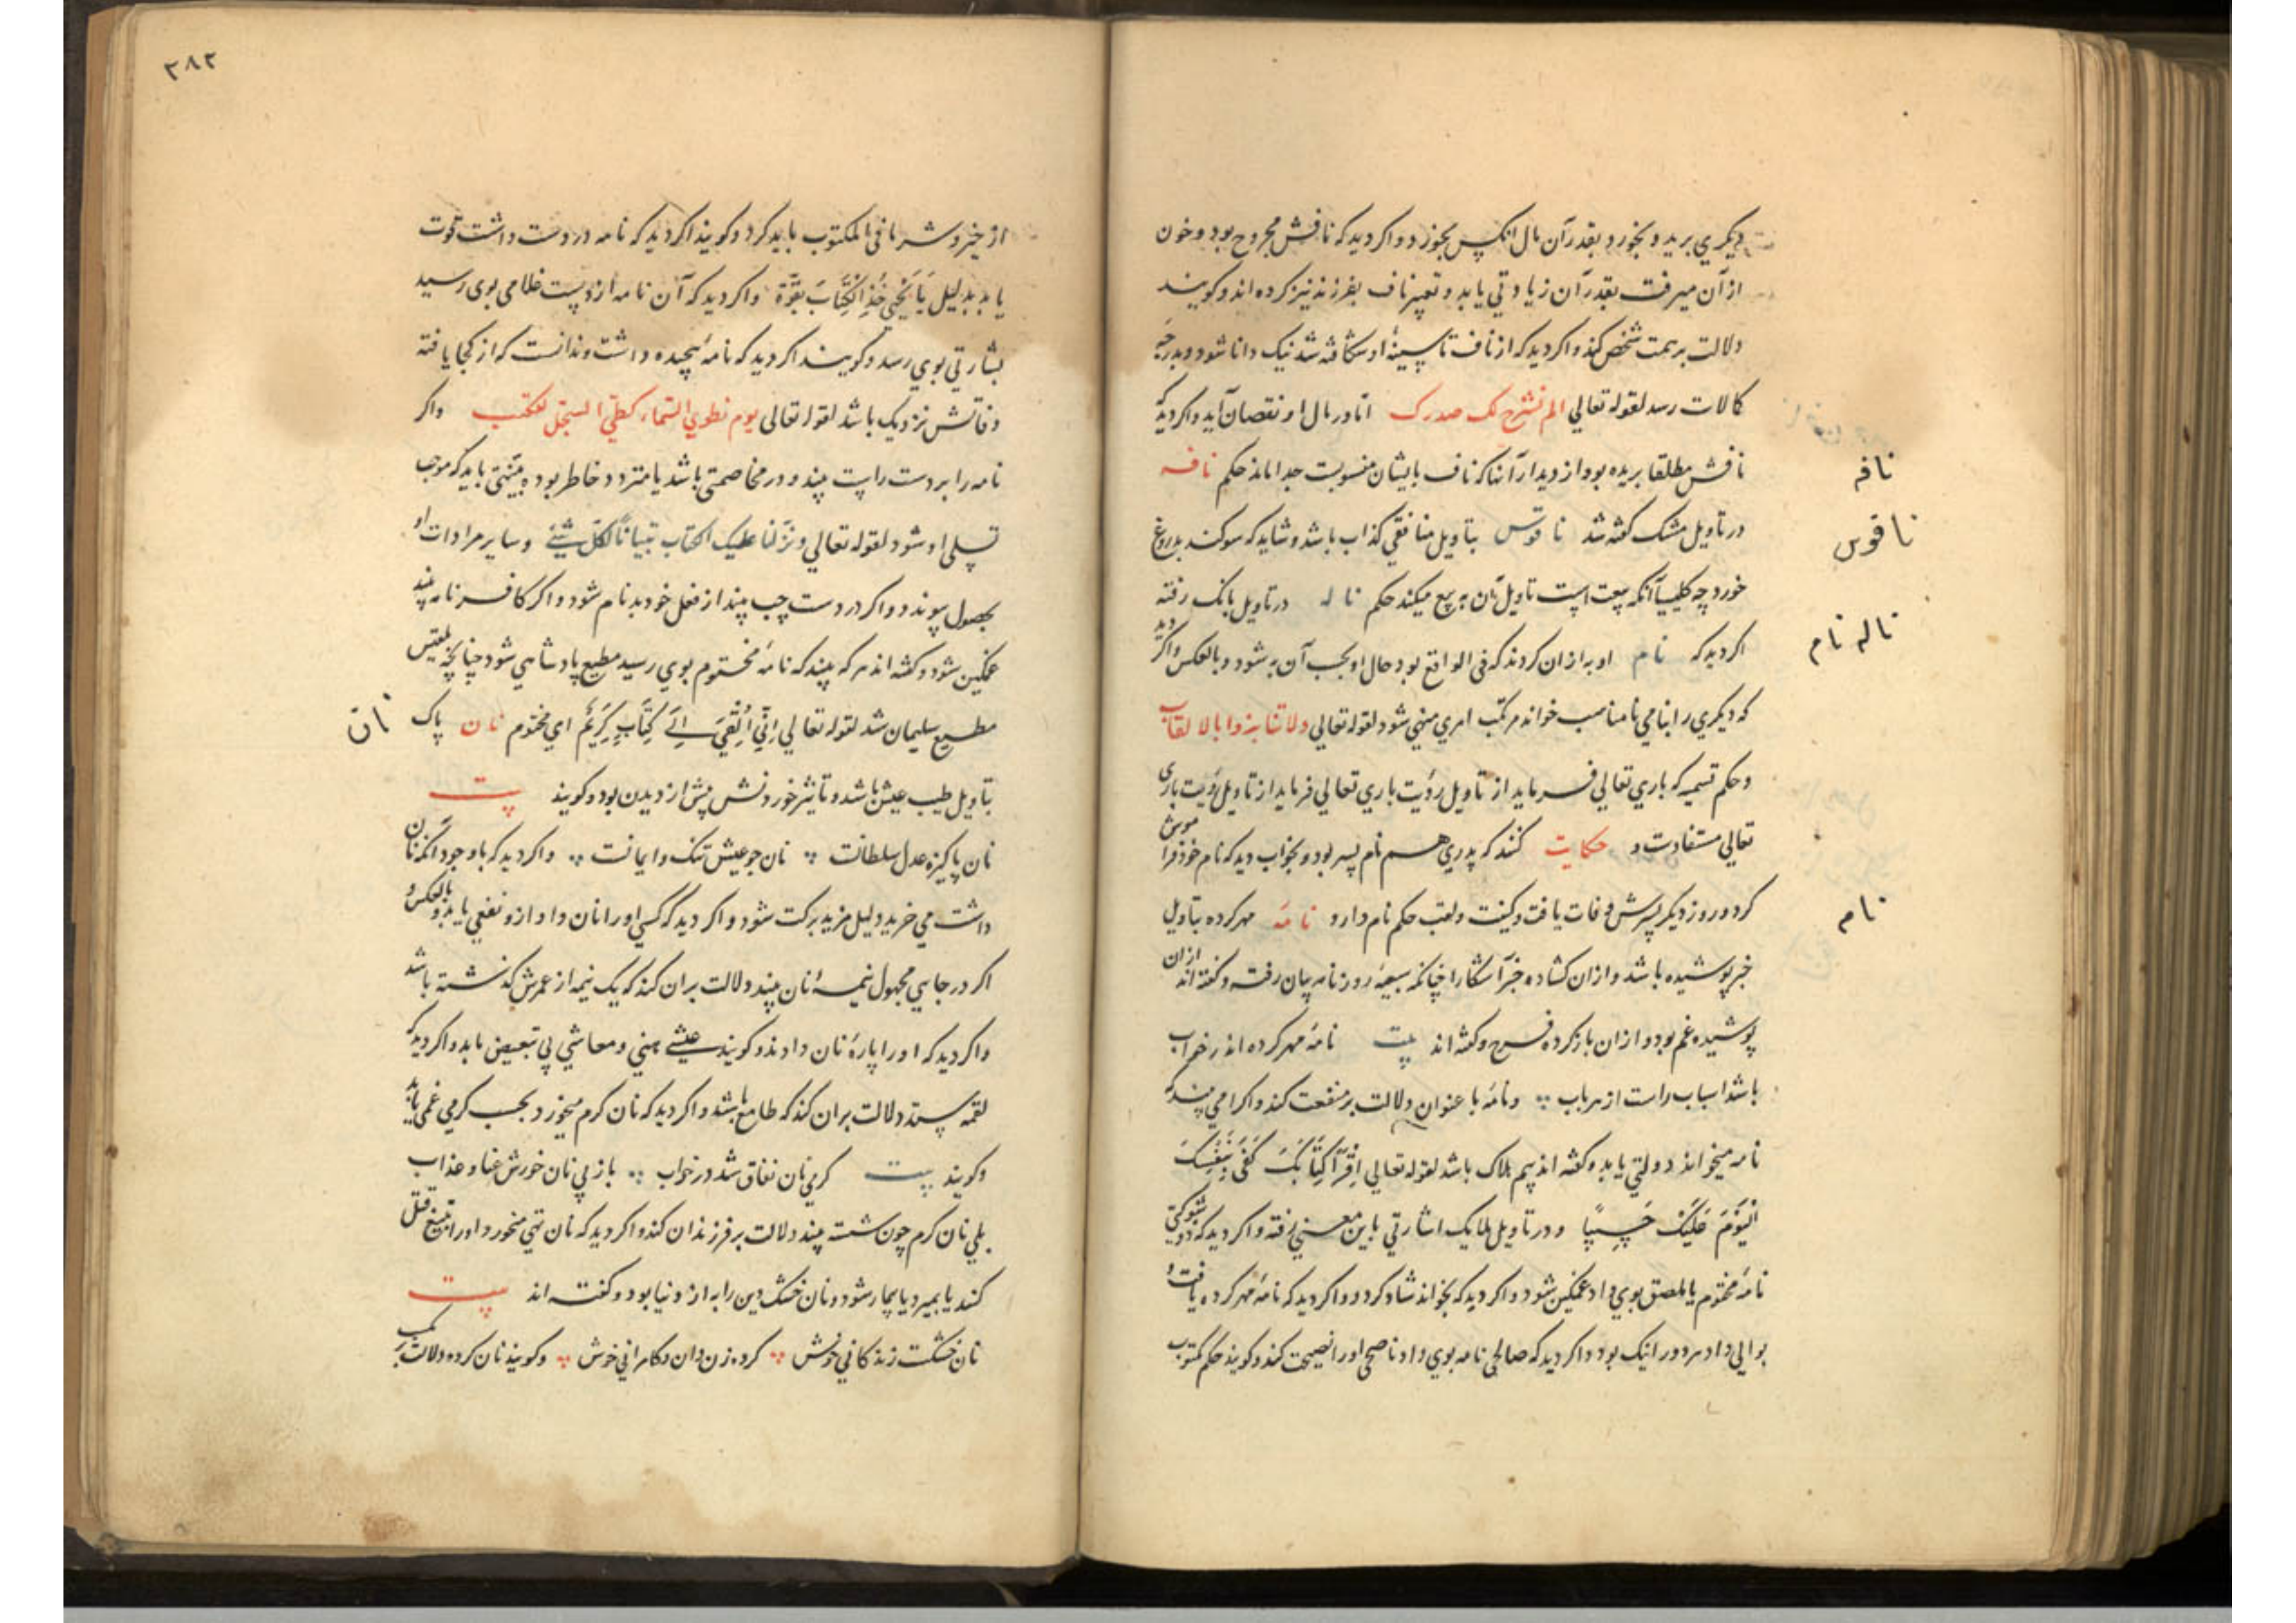 دیکری برید و بخورد بقدر آن مال آنکس بخورد و اکر دید که نافش مجروح بود و خون
از آن میرفت بقدر آن زیادتی یابد و تعبیر ناف بفرزند نیز کرده اند و کویند
دلالت بر همت شخص کند و اکر دید که از ناف تا سینهٔ او شکافته شد نیک دانا شود و بدرجه
کمالات رسد لقوله تعالی الم نشرح لک صدرک اما در مال او نقصان آید و اکر دید که
نافش مطلقا بریده بود از دیدار آنها که ناف بایشان منسوبست جدا ماند حکم نافه
نافه
در تاویل مشک کفته شد ناقوس بتاویل منافقی کذاب باشد و شاید که سوکند بدروغ
ناقوس
خورد چه کلیسیا آنکه بیعت است تاویل آن به بیع میکند حکم ناله در تاویل بانک رفته
ناله نام
اکر دید که نام او به از آن کردند که فی الواقع بود حال او بحسب آن به شود و بالعکس و اکر دید
که دیکری را بنامی نامناسب خواند مرتکب امری منهی شود لقوله تعالی ولا تنابزوا بالالقاب
و حکم قسمی که باری تعالی فرماید از تاویل رؤیت باری تعالی فرماید از تاویل رؤیت باری
تعالی مستفادست و حکایت کنند که پدری هم نام پسر بود و بخواب دید که نام خود فراموش
کرد و روز دیکر پسرش وفات یافت و کنیت و لقب حکم نام دارد نامه مهر کرده بتاویل
نام
خبر پوشیده باشد و از آن کشاده خبر آشکارا چنانکه روزنامه بیان رفت و کفته اند از آن
پوشیده غم بود و از آن باز کرده فرح و کفته اند بیت نامهٔ مهر کرده اند
باشد اسباب راست از هر باب و نامهٔ با عنوان دلالت بر منفعت کند و اکر امی بیند که
نامه میخواند دولتی یابد و کفته اند بیم هلاک باشد لقوله تعالی اقرأ کتابک کفی بنفسک
الیوم علیک حسیبا و در تاویل ملایک اشارتی باین معنی رفته و اکر دید که ذو شوکتی
نامهٔ مختوم یا ملصق بوی داد غمکین شود و اکر دید که بخواند شاد کردد و اکر دید که نامهٔ مهر کرده یافت و
بوالی داد هر دو را نیک بود و اکر دید که صالحی نامه بوی داد ناصحی او را نصیحت کند و کویند حکم مکتوب
۳۸۲
از خیر و شر ما فی المکتوب باید کرد و کویند اکر دید که نامه در دست داشت قوت
یابد بدلیل یا یحیی خذ الکتاب بقوة و اکر دید که آن نامه از دست غلامی بوی رسید
بشارتی بوی رسد و کویند اکر دید که نامهٔ پیچیده داشت و ندانست که از کجا یافته
وفاتش نزدیک باشد لقوله تعالی یوم نطوی السماء کطی السجل للکتب و اکر
نامه را بر دست راست بیند و در مخاصمتی باشد یا متردد خاطر بود بینتی یابد که موجب
تسلی او شود لقوله تعالی ونزلنا علیک الکتاب تبیانا لکل شیئ و سایر مرادات او
بحصول پیوندد و اکر در دست چپ بیند از فعل خود بدنام شود و اکر کافر نامه بیند
غمکین شود و کفته اند هر که بیند که نامهٔ مختوم بوی رسید مطیع پادشاهی شود چنانچه بلقیس
مطیع سلیمان شد لقوله تعالی انی القی الی کتاب کریم ای مختوم نان پاک
نان
بتاویل طیب عیش باشد و تاثیر خوردنش بیش از دیدن بود و کویند بیت
نان پاکیزه عدل سلطانست نان جو عیش تنک و ایمانست و اکر دید که با وجود آنکه نان
داشت می خرید دلیل مزید برکت شود و اکر دید که کسی او را نان داد ازو نفعی یابد و بالعکس و
اکر در جایی مجهول نیمهٔ نان بیند دلالت بر آن کند که یک نیمه از عمرش کذشته باشد
و اکر دید که او را پارهٔ نان دادند و کویند عیشی هنی و معاشی بی تبعیض یابد و اکر دید که
لقمه ستد دلالت بر آن کند که طامع باشد و اکر دید که نان کرم میخورد بحسب کرمی غمی یابد
و کویند بیت کرمی نان نفاق شد در خواب باز بی نان خورش عنا و عذاب
بلی نان کرم چون شسته بیند دلالت بر فرزندان کند و اکر دید که نان تهی میخورد او را بتیغ قتل
کند یا بمیرد یا بیمار شود و نان خشک دین را به از دنیا بود و کفته اند بیت
نان خشکست زندکانی خوش کرده زن دان و کامرانی خوش و کویند نان کرده دلالت بر